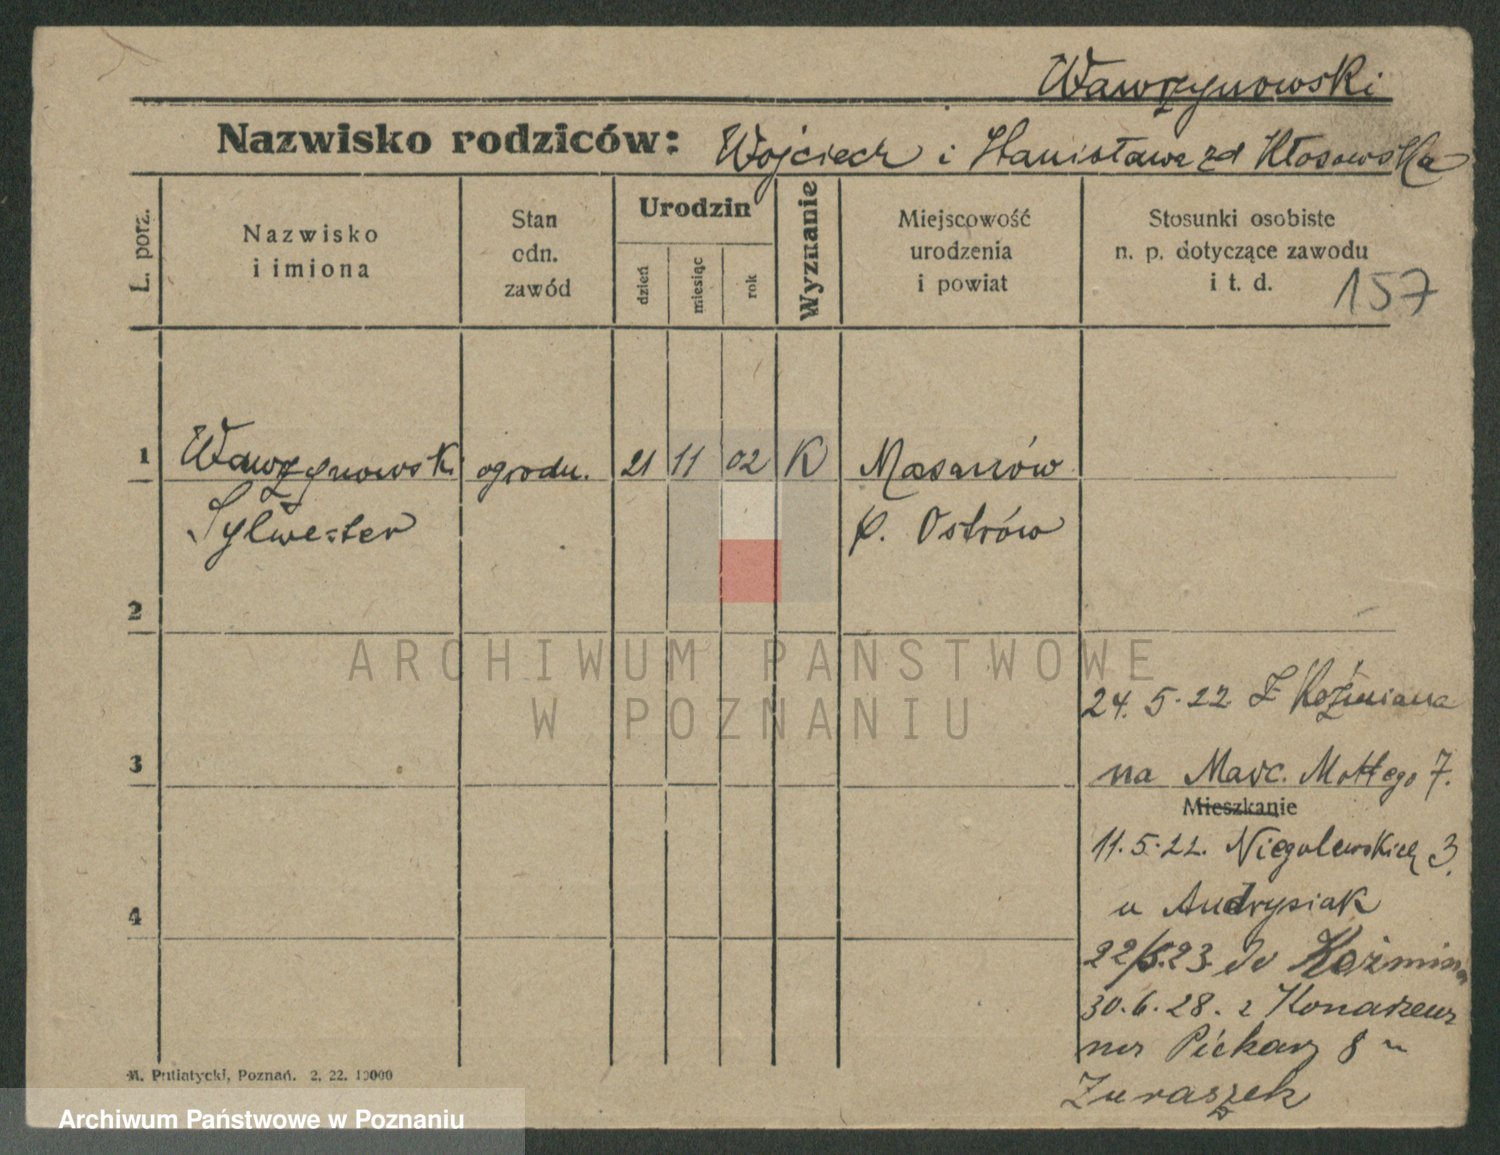 Wawrzynowski
Nazwisko rodziców: Wojciech i Stanisława zd Kłosowska
L. porz.
Nazwisko
i imiona
Stan
odn.
zawód
Urodzin
dzień
miesiąc
rok
Wyznanie
Miejscowość
urodzenia
i powiat
Stosunki osobiste
n. p. dotyczące zawodu
i t. d.
157
1 Wawrzynowski ogrodn. 21 11 02 K Masanów
Sylwester p. Ostrów
2
24. 5. 22 z Koźmiana
3 na Marc. Mottego 7.
Mieszkanie
11. 5. 22. Niegolewskich 3.
4 u Andrysiak
22/5.23. do Koźmina
30. 6. 28. z Konarzew
Piekary 8
Zuraszek
M. Putiatycki, Poznań. 2. 22. 10000
ARCHIWUM PAŃSTWOWE
W POZNANIU
Archiwum Państwowe w Poznaniu